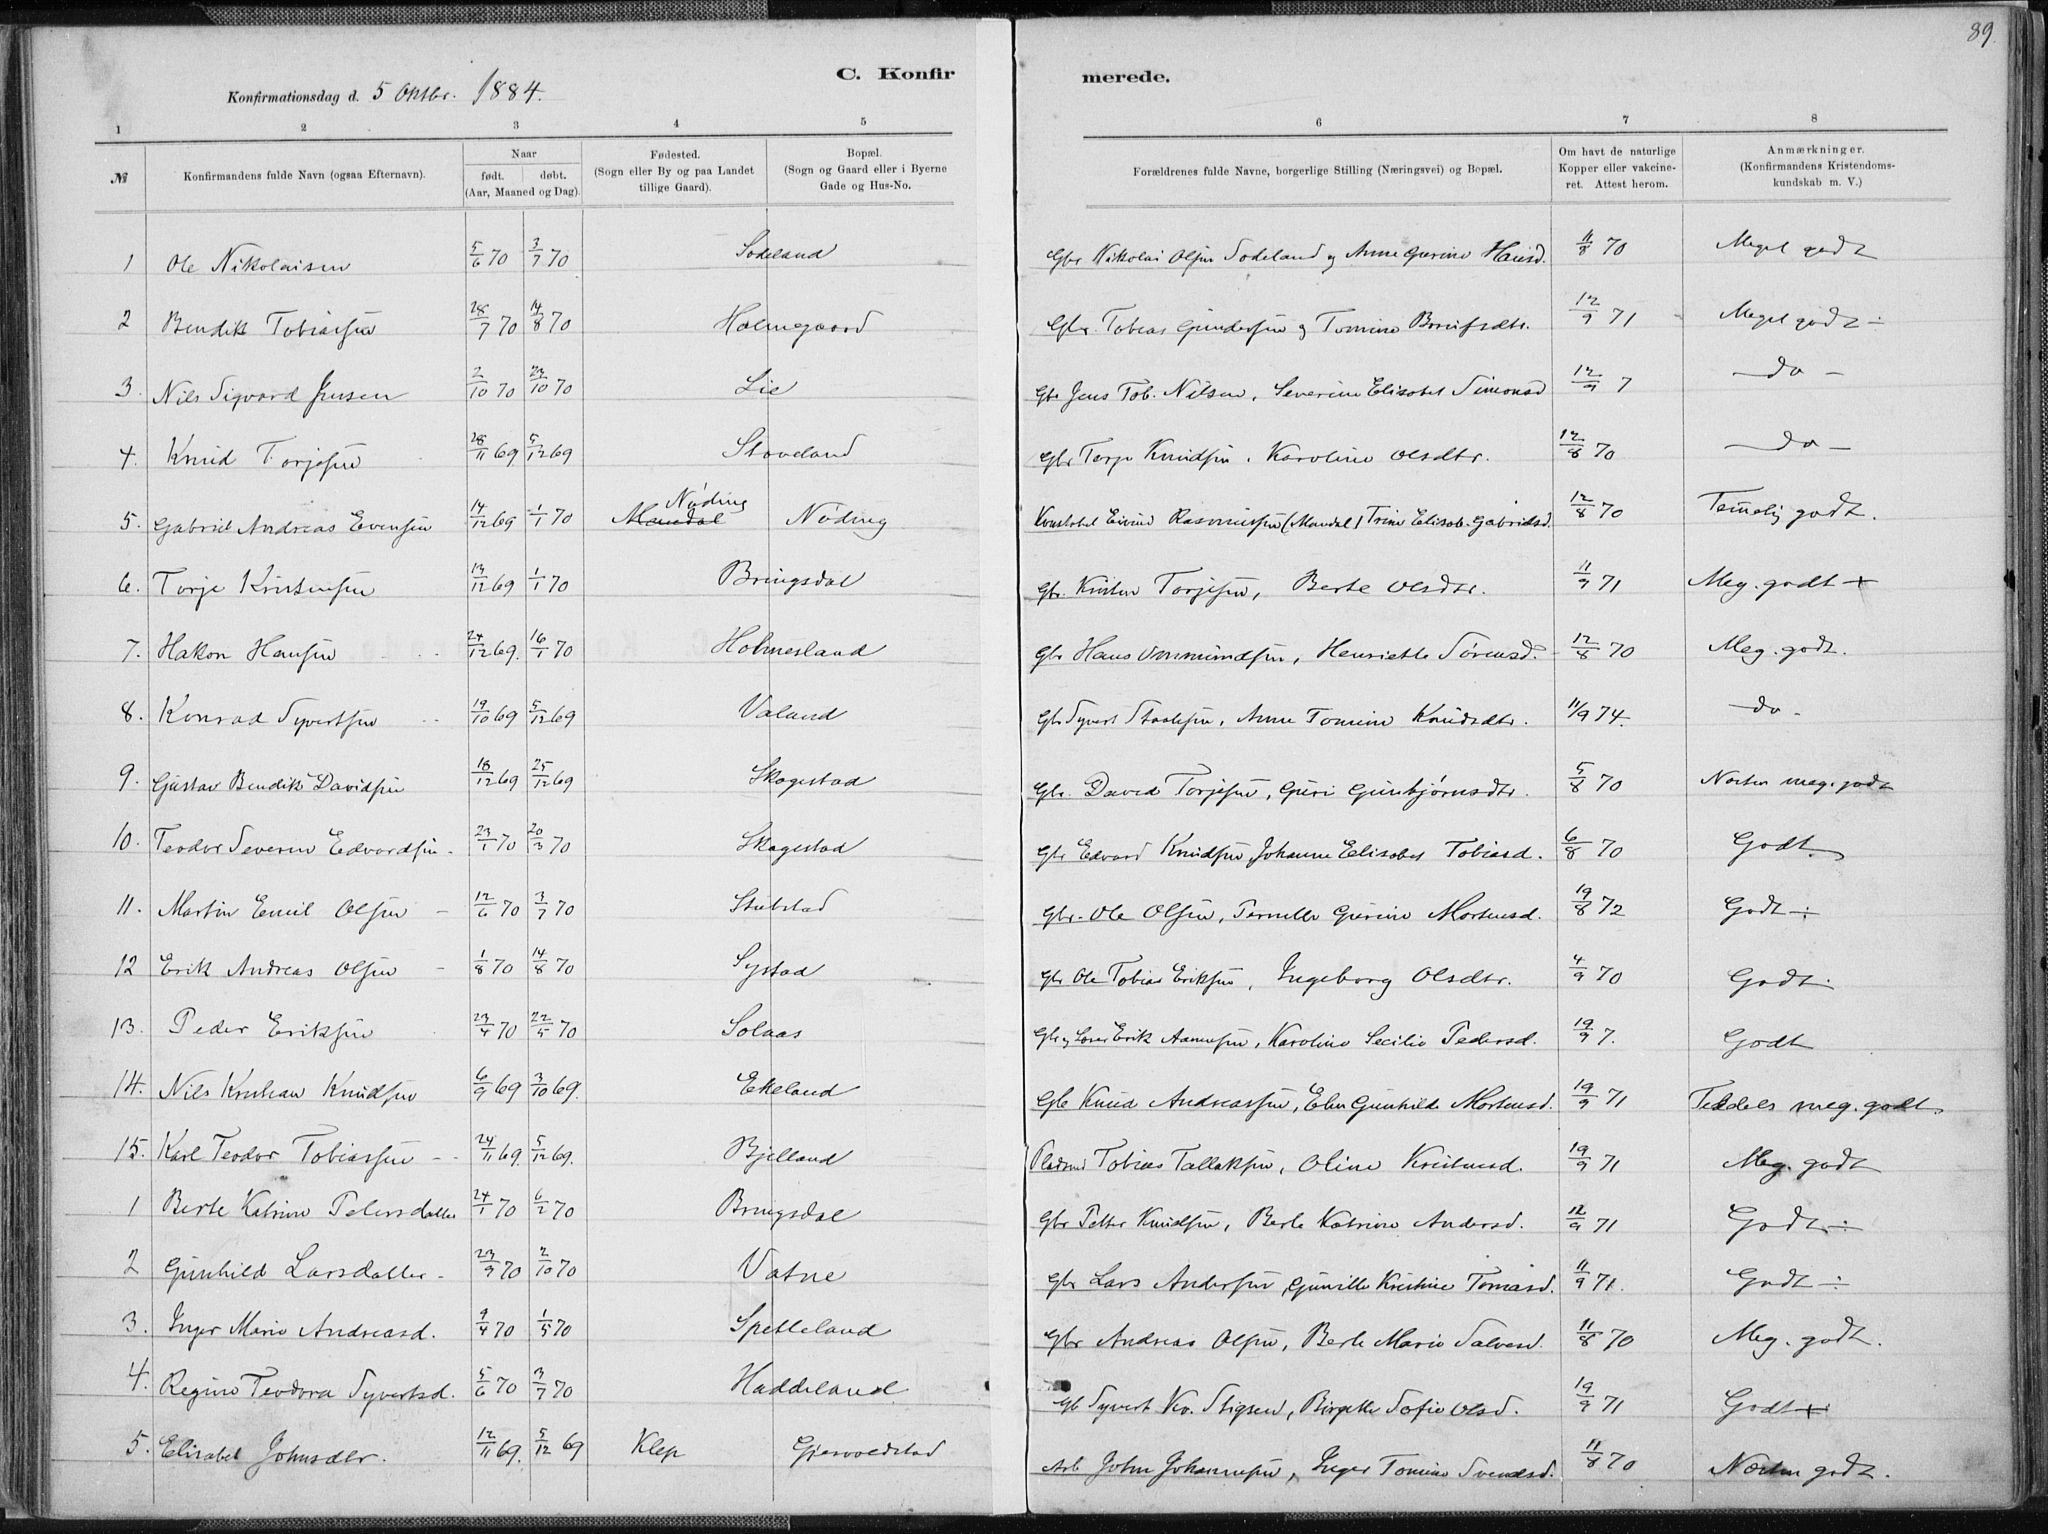 89.
C. Konfir merede.
Konfirmationsdag d. 5 Oktbr. 1884.
1 2 3 4 5 6 7 8
№ Konfirmandens fulde Navn (ogsaa Efternavn). Naar født. døbt. (Aar, Maaned og Dag). Fødested. (Sogn eller By og paa Landet tillige Gaard). Bopæl. (Sogn og Gaard eller i Byerne Gade og Hus-No. Forældrenes fulde Navne, borgerlige Stilling (Næringsvei) og Bopæl. Om havt de naturlige Kopper eller vakcineret. Attest herom. Anmærkninger. (Konfirmandens Kristendomskundskab m. V.)
1 Ole Nikolaisen 5/6 70 3/7 70 Sodeland Gbr Nikolai Olsen Sodeland og Anne Gurine Hansd. 11/8 70 Meget godt
2 Bendik Tobiassen 28/7 70 14/8 70 Holmegaard Gbr. Tobias Gundersen og Tomine dtr. 12/9 71 Meget godt ÷
3. Nils Sigvard Jensen 2/10 70 23/10 70 Lie Gbr Jens Tob. Nilsen, Severine Elisabet Simonsd 12/9 7 – do –
4. Knud Torjesen 28/11 69 5/12 69 Stoveland Gbr Torje Knudsen, Karoline Olsdtr. 12/8 70 – do –
5. Gabriel Andreas Evensen 14/12 69 1/1 70 Mandal Nøding Nøding Konstabel Eivind Rasmussen (Mandal) Trine Elisab. Gabrielsd. 12/8 70 Temelig godt.
6. Torje Kristensen 13/12 69 1/1 70 Bringsdal Gbr. Kristen Torjesen, Berte Olsdtr. 11/9 71 Meg. godt +
7. Hakon Hansen 24/12 69. 16/1 70 Holmesland Gbr Hans Ommundsen, Henriette Sørensd. 12/8 70 Meg. godt.
8. Konrad Syvertsen 19/10 69 5/12 69 Valand Gbr Syvert Staalesen, Anne Tomine Knudsdtr. 11/9 74. do –
9. Gustav Bendik Davidsen 18/12 69 25/12 69 Skogestad Gbr. David Torjesen, Guri Gunbjørnsdtr. 5/8 70 Næsten meg. godt
10. Teodor Severin Edvardsen 23/1 70 20/3 70 Skogestad Gbr Edvard Knudsen, Johanne Elisabet Tobiasd. 6/8 70 Godt.
11. Martin Emil Olsen 12/6 70 3/7 70 Stubstad Gbr. Ole Olsen, Pernille Gurine Mortensd. 19/8 72 Godt ÷
12 Erik Andreas Olsen 1/8 70 14/8 70 Systad Gbr Ole Tobias Eriksen, Ingeborg Olsdtr. 4/9 70 Godt.
13. Peder Eriksen 23/4 70 22/5 70 Solaas Gbr og Erik Aanensen, Karoline Secilie Pedersd. 19/9 7. Godt
14. Nils Kristian Knudsen 6/9 69 3/10 69. Ekeland Gbr Knud Andreassen, Elen Gunhilde Mortensd. 19/9 71 Teddels meg. godt.
15. Karl Teodor Tobiassen 24/11 69. 5/12 69. Bjelland Pladsmd Tobias Tallaksen, Oline Kristensd. 19/9 71 Meg. godt
1 Berte Katrine Petersdatter 24/1 70 6/2 70 Bringsdal Gbr Petter Knudsen, Berte Katrine Andersd. 12/9 71 Godt ÷
2 Gunhild Larsdatter 23/9 70 2/10 70 Vatne Gbr Lars Andersen, Gunille Kristine Tomasd. 11/9 71. Godt ÷
3. Inger Marie Andreasd. 9/4 70 1/5 70 Spetteland Gbr Andreas Olsen, Berte Marie Salvesd. 11/8 70 Meg. godt.
4. Regine Teodora Syvertsd. 5/6 70 3/7 70 Haddeland Gb Syvert Kr. Stigsen, Birgitte Sofie Olsd. 19/9 71 Godt +
5. Elisabet Johnsdtr. 12/11 69. 5/12 69 Klep Gjervoldstad Arb John Johannesen, Inger Tomine Svendsd. 11/8 70 Næsten godt.